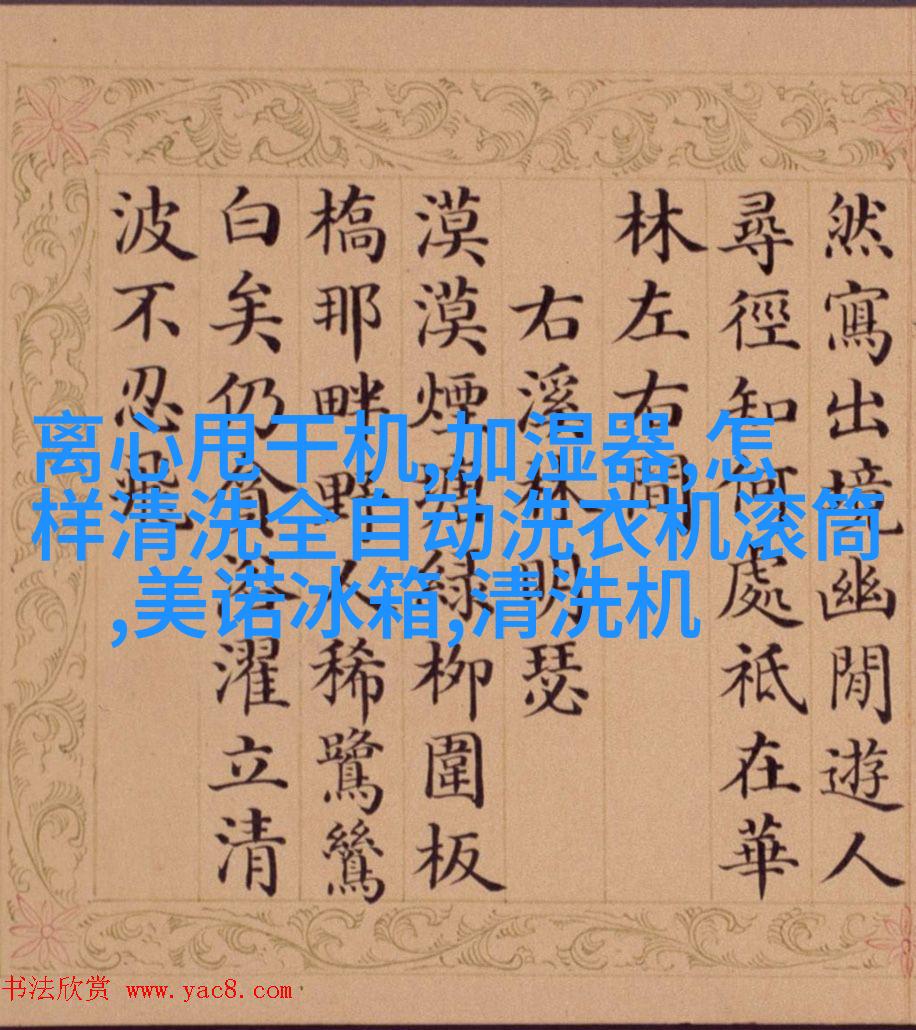 然寫出境幽閒遊人
尋徑知何處祇在華
林左右間
右溪林明瑟
漠漠煙綠柳圍板
橋那畔野人稀鷺鷥
白矣仍貪浴濯立清
波不忍飛
离心甩干机,加湿器,怎
样清洗全自动洗衣机滚筒
,美诺冰箱,清洗机
书法欣赏 www.yac8.com